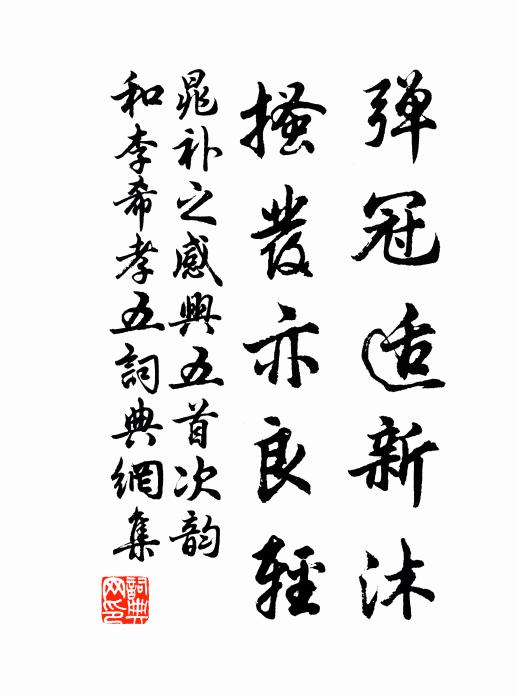 弹冠适新沐
搔发亦良轻
晁补之感興五首次韵
和李希孝五詞典網集